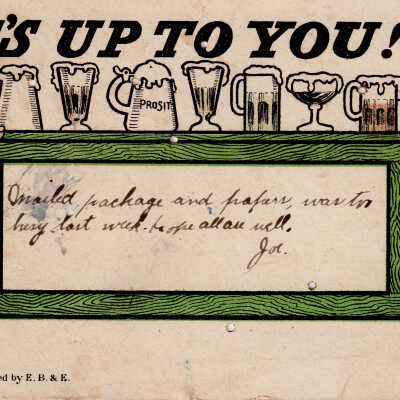 'S UP TO YOU!
PROSIT
Mailed package and papers, was too
busy last week. hope all are well.
Joe.
ed by E. B. & E.